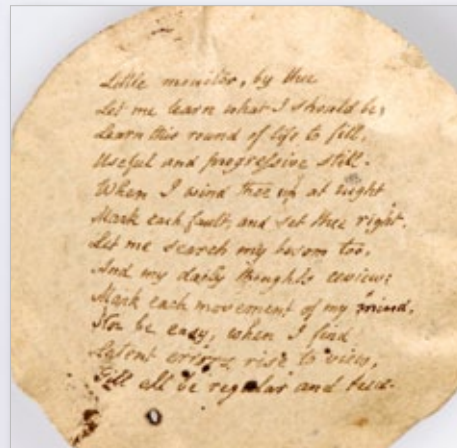 Little monitor, by thee
Let me learn what I should be,
Learn this round of life to fill,
Useful and progressive still.
When I wind thee up at night
Mark each fault, and set thee right.
Let me search my bosom too,
And my daily thoughts review;
Mark each movement of my mind,
Nor be easy, when I find
Latent errors rise to view,
Till all be regular and true.